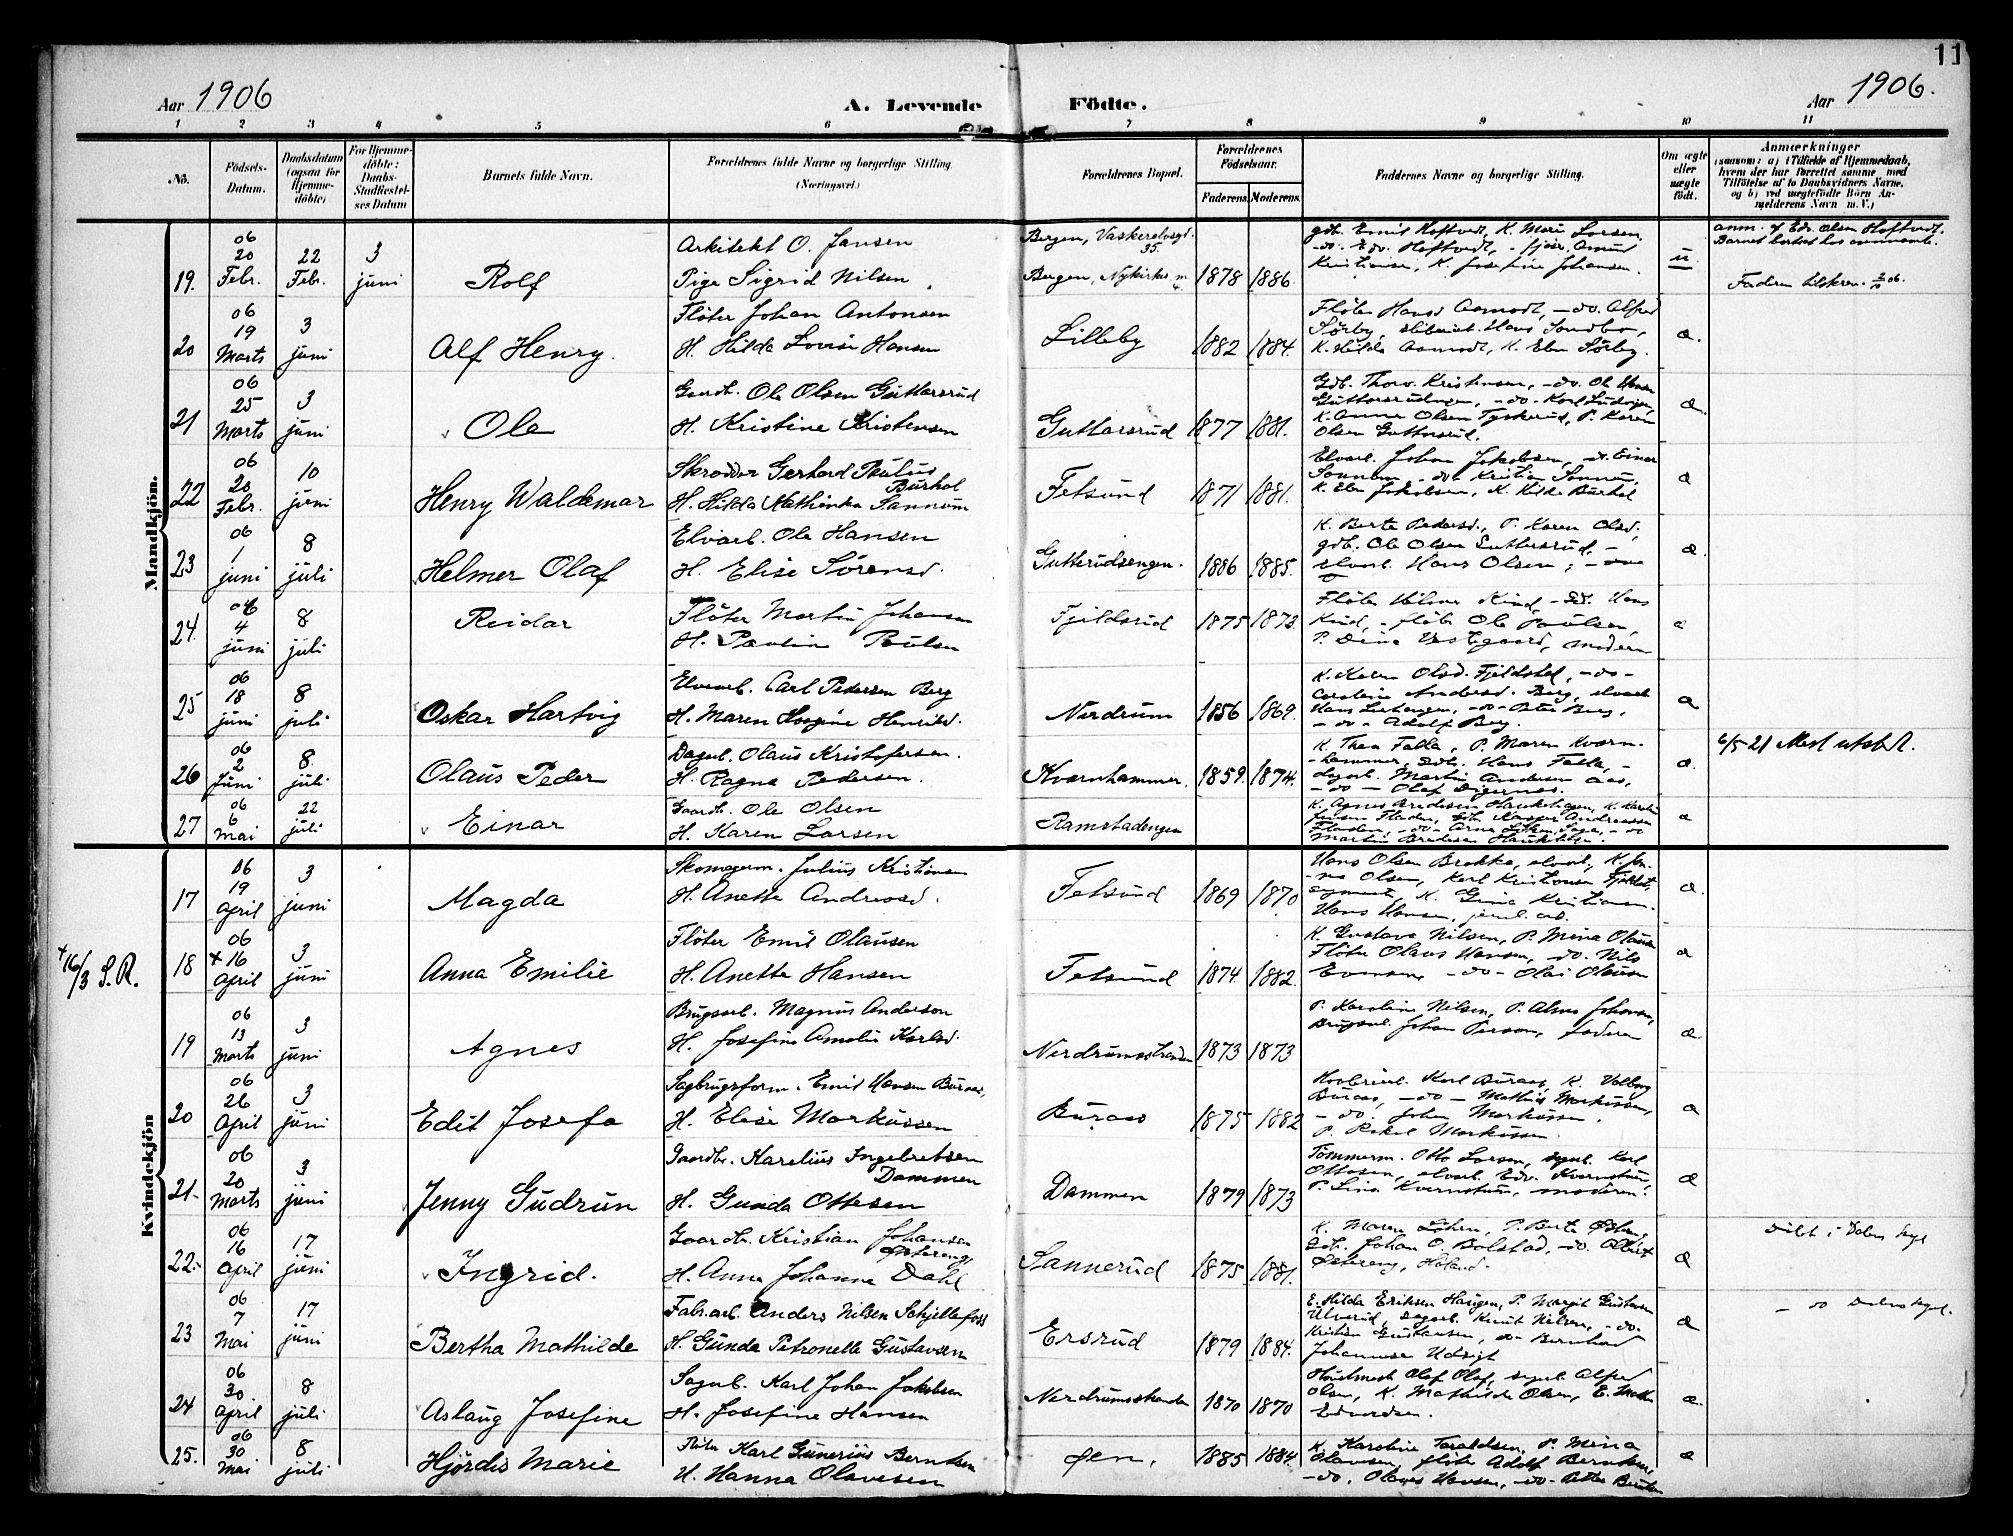 11
Aar 1906
A. Levende Födte.
Aar 1906.
1 2 3 4 5 6 7 8 9 10 11
No.
Födsels-Datum.
Daabsdatum (ogsaa for Hjemme-döbte)
For Hjemme-döbte: Daabs-Stadfæstel-ses Datum
Barnets fulde Navn.
Forældrenes fulde Navne og borgerlige Stilling (Næringsvei.)
Forældrenes Bopæl.
Forældrenes Födselsaar.
Faderens Moderens.
Faddernes Navne og borgerlige Stilling.
Om ægte eller uægte födt.
Anmærkninger
(saasom: a) i Tilfælde af Hjemmedaab, hvem der har forrettet samme, med Tilföielse af to Daabsvidners Navne, og b) ved uægtefödte Börn An-melderens Navn m. V.)
Mandkjön.
19. 06 20 Febr. 22 Febr. 3 juni Rolf
Arkitekt O. Jansen
Pige Sigrid Nilsen
Bergen, Vaskerelvsgd. 35.
Bergen, Nykirkes m
1878 1886
gdb. Emil Hoftvedt, K. Marie Larsen,
-do- Edv. Hoftvedt,
Kristiansen, K. Josefine Johansen.
u
anm. af Edv. Olsen Hoftvedt.
Faderen tilskrev.
20 06 19 Marts 3 juni Alf Henry.
Flöter Johan Antonsen
H. Hilda Lovise Hansen
Lilleby 1882 1884.
Flöter Hans Aamodt, -do- Alfred
Sörby, Hans
K. Hilda Aamodt, K. Elen Sörby.
a.
21 06 25 Marts 3 juni Ole
Gaardb. Ole Olsen Guttersrud
H. Kristine Kristensen
Guttersrud 1877 1881.
Gdb. Thorv. Kristensen, -do- Ole
-do- Karl Ludvigsen,
K. Anne Olsen Tyskerud, P. Karen
Olsen Guttersrud.
a.
22 06 20 Febr. 10 juni Henry Waldemar
Skrædder Gerhard Paulus Burhol
H. Hilda Mathinka Sannum
Fetsund 1871 1881.
Elvarb. Johan Jakobsen, -do- Einar
Sannum -do- Kristian Sannum,
K. Elen Jakobsen, K. Hilda Burhol
a
23 06 1 juni 8 juli Helmer Olaf
Elvarb. Ole Hansen
H. Elise Sörensd.
Gutterudsengen. 1886 1885.
K. Berte Pedersd., P. Karen Olsd.,
gdb. Ole Olsen Guttersrud, -
elvarb. Hans Olsen,
a.
24. 06 4 juni 8 juli Reidar
Flöter Martin Johansen
H. Paulin Paulsen
Fjeldsrud 1875 1873.
Flöter Hilmar Kind, Hans
Kind, - flöter Ole Paulsen,
P. Dina Vestgaard, moderen
a
25 06 18 juni 8 juli Oskar Hartvig
Elvearb. Carl Pedersen Berg
H. Maren Hagine Henriksd.
Nerdrum 1856 1869.
K. Karen Olsd. Fjeldstad, -do-
Caroline Andersd. Berg, elvarb.
-do- Peter Berg,
-do- Adolf Berg.
a
26 06 2 juni 8 juli Olaus Peder
Dagarb. Olaus Kristofersen.
H. Ragna Pedersen.
Kvernhammer. 1859. 1874.
K. Thea Falla, P. Maren Kvern-
hammer, Gdb. Hans Falla, -
dagarb. Martin Andersen Aas,
-do- Olaf Digernes.
a.
6/5 21 Attest utstedt.
27 06 6 mai 22 juli Einar
Gaardb. Ole Olsen
H. Karen Larsen
Ramstadengen
K. Agnes Bredesen Haukhagen, K. Karoline
Jensen Fladen, gdb. Kasper Andreassen
Fladen, -do- Arne
Martin Bredesen Haukhagen.
a
Kvindekjön
17 06 19 April 3 juni Magda
Skomagerm. Julius Kristiansen
H. Anette Andreasd.
Fetsund 1869 1870
Hans Olsen Brekke, elvarb., K. Jen-
ne Olsen, Karl Kristiansen Fjeldst.,
K. Gina Kristiansen.
Hans Hansen,
a.
+16/3 S.R.
18 06 +16 April 3 juni Anna Emilie
Flöter Emil Olausen
H. Anette Hansen
Fetsund 1874 1882.
K. Gustava Nilsen, P. Mina Olausen
Flöter Olaus Hansen, -do- Nils
Evensen, -do- Olai Olausen
a
19 06 13 Marts 3 juni Agnes
Brugsarb. Magnus Anderson
H. Josefine Amalie Karlsd.
Nerdrumsstranden 1873 1873
P. Karoline Nilsen, P. Alma Johansen,
Brugsarb. Johan Person, faderen
a.
20 06 26 April 3 juni Edit Josefa
Sagbrugsform. Emil Hansen Buraas,
H. Elise Markussen
Buraas 1875 1882
Karl Buraas, K. Valborg
Buraas, -do- Mathias Markussen,
-do- Johan Markussen.
P. Rakel Markussen.
a
21. 06 20 Marts 3 juni Jenny Gudrun
Gaardbr. Karelius Ingebretsen Dammen
H. Gunda Ottesen
Dammen 1879 1873
Tömmerm. Otto Larsen, Karl
Ottesen, elvarb. Edv. Kvernstuen,
P. Lina Kvernstuen, moderen.
a
22. 06 16 April 17 juni Ingrid.
Gaardb. Kristian Johansen Östereng
H. Anna Johanne Dahl
Sannerud 1875 1881.
K. Maren P. Berte
Gdb. Johan O. Bolstad, -do- Albert
Östereng, Höland.
a
Döbt i Dalens Kgl.
23 06 7 Mai 17 juni Bertha Mathilde
Fabr.arb. Anders Nilsen Schjellefoss
H. Gunda Petronelle Gustavsen
Ersrud 1879 1884.
E. Hilda Eriksen Haugen, P. Margit Gustavsen
Ulverud, dagarb. Knut Nilsen, -do-
Kristian Gustavsen, -do- Bernhard
Johannesen Udsigt
a
- do Dalens Kgl.
24 06 30 April 8 juli Aslaug Josefine
Sagarb. Karl Johan Jakobsen
H. Josefine Hansen
Nerdrumsstranden 1870 1870
Olaf Olsen, Alfred
Olsen, K. Mathilde Olsen, E.
Edvardsen.
a.
25. 06 30 Mai 8 juli Hjördis Marie
Flöter Karl Gunerius Berntsen
H. Hanna Olavesen
Öen, 1885 1884.
K. Karoline Taraldsen, P. Mina
Olausen, flöter Adolf Berntsen,
-do- Olaves Hansen, -do- Petter Berntsen
a